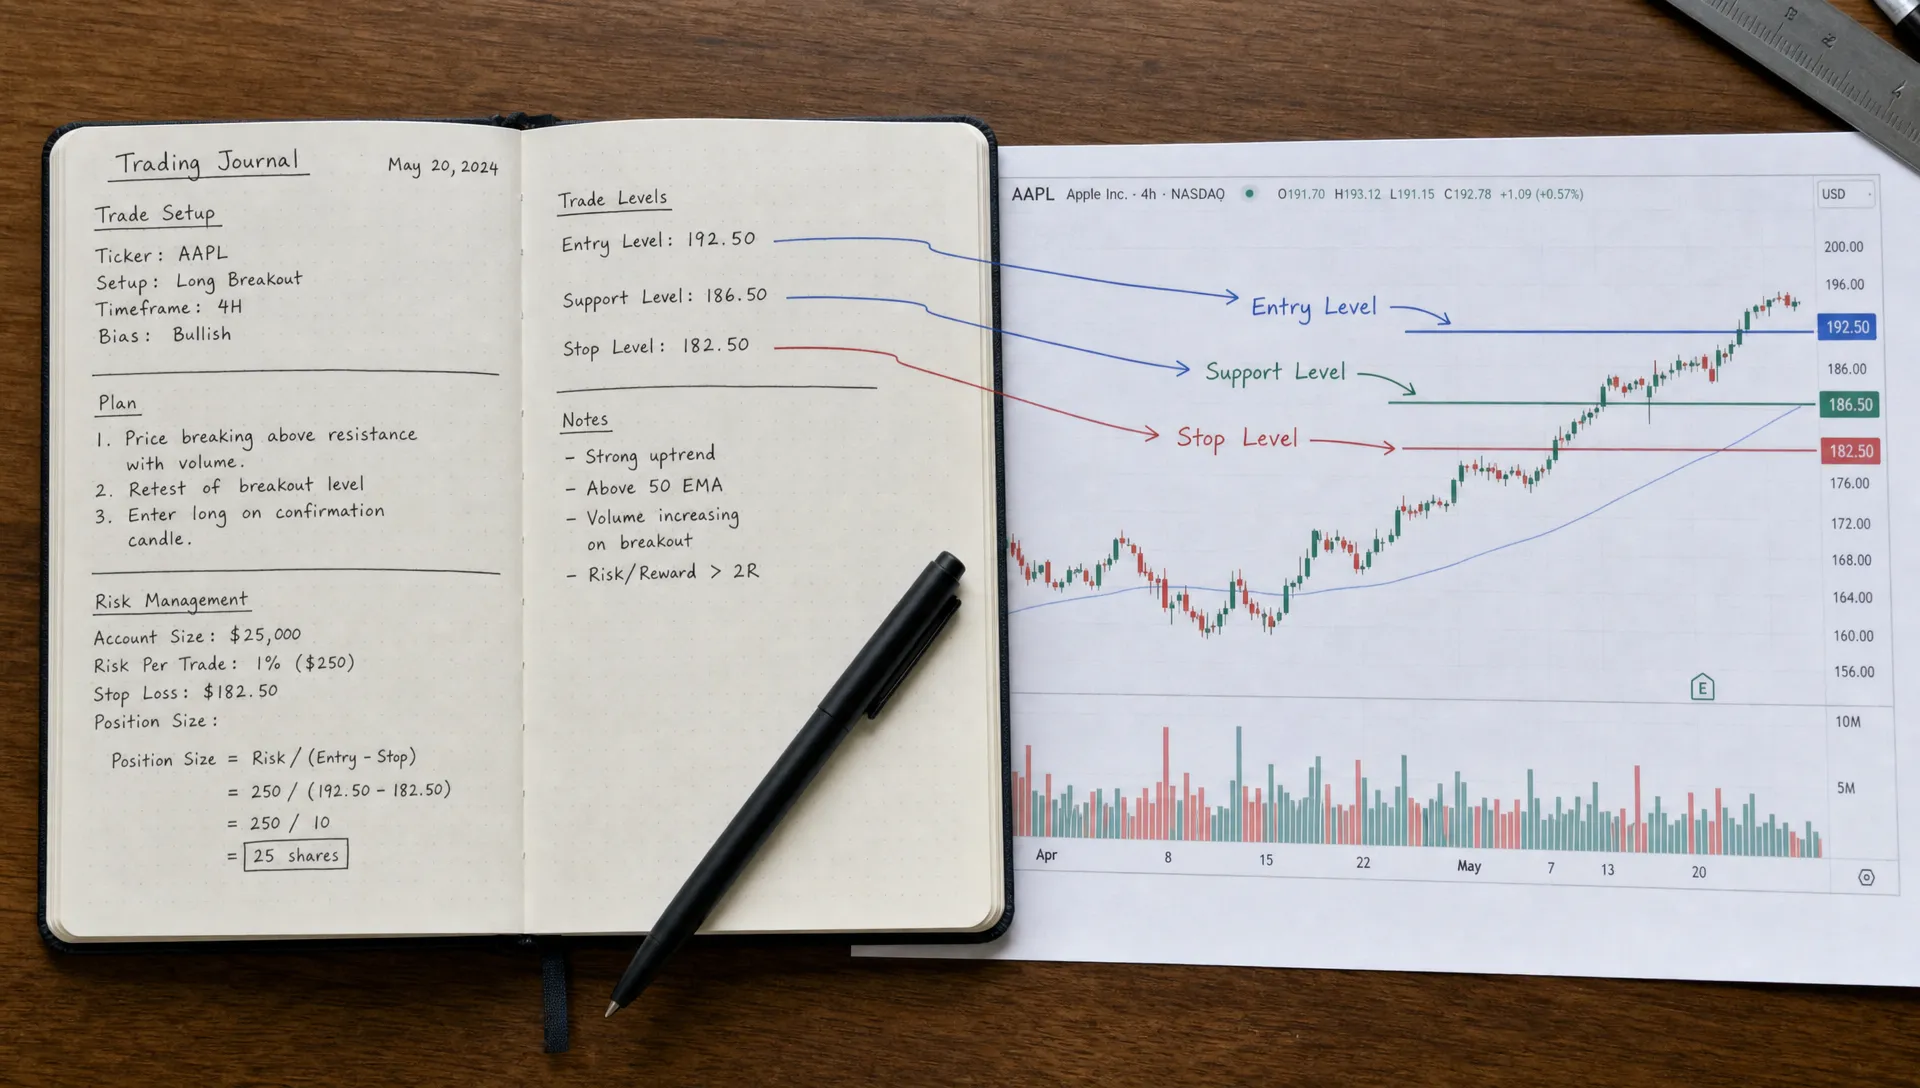 Trading Journal
May 20, 2024
Trade Setup
Ticker: AAPL
Setup: Long Breakout
Timeframe: 4H
Bias: Bullish
Plan
1. Price breaking above resistance
with volume.
2. Retest of breakout level
3. Enter long on confirmation
candle.
Risk Management
Account Size: $25,000
Risk Per Trade: 1% ($250)
Stop Loss: $182.50
Position Size:
Position Size = Risk / (Entry - Stop)
= 250 / (192.50 - 182.50)
= 250 / 10
= 25 shares
Trade Levels
Entry Level: 192.50
Support Level: 186.50
Stop Level: 182.50
Notes
- Strong uptrend
- Above 50 EMA
- Volume increasing
on breakout
- Risk/Reward > 2R
AAPL Apple Inc. · 4h · NASDAQ O191.70 H193.12 L191.15 C192.78 +1.09 (+0.57%)
USD
Entry Level
Support Level
Stop Level
200.00
196.00
192.50
186.00
186.50
182.50
176.00
172.00
168.00
164.00
160.00
156.00
E
10M
5M
Apr 8 15 22 May 7 13 20
2
4